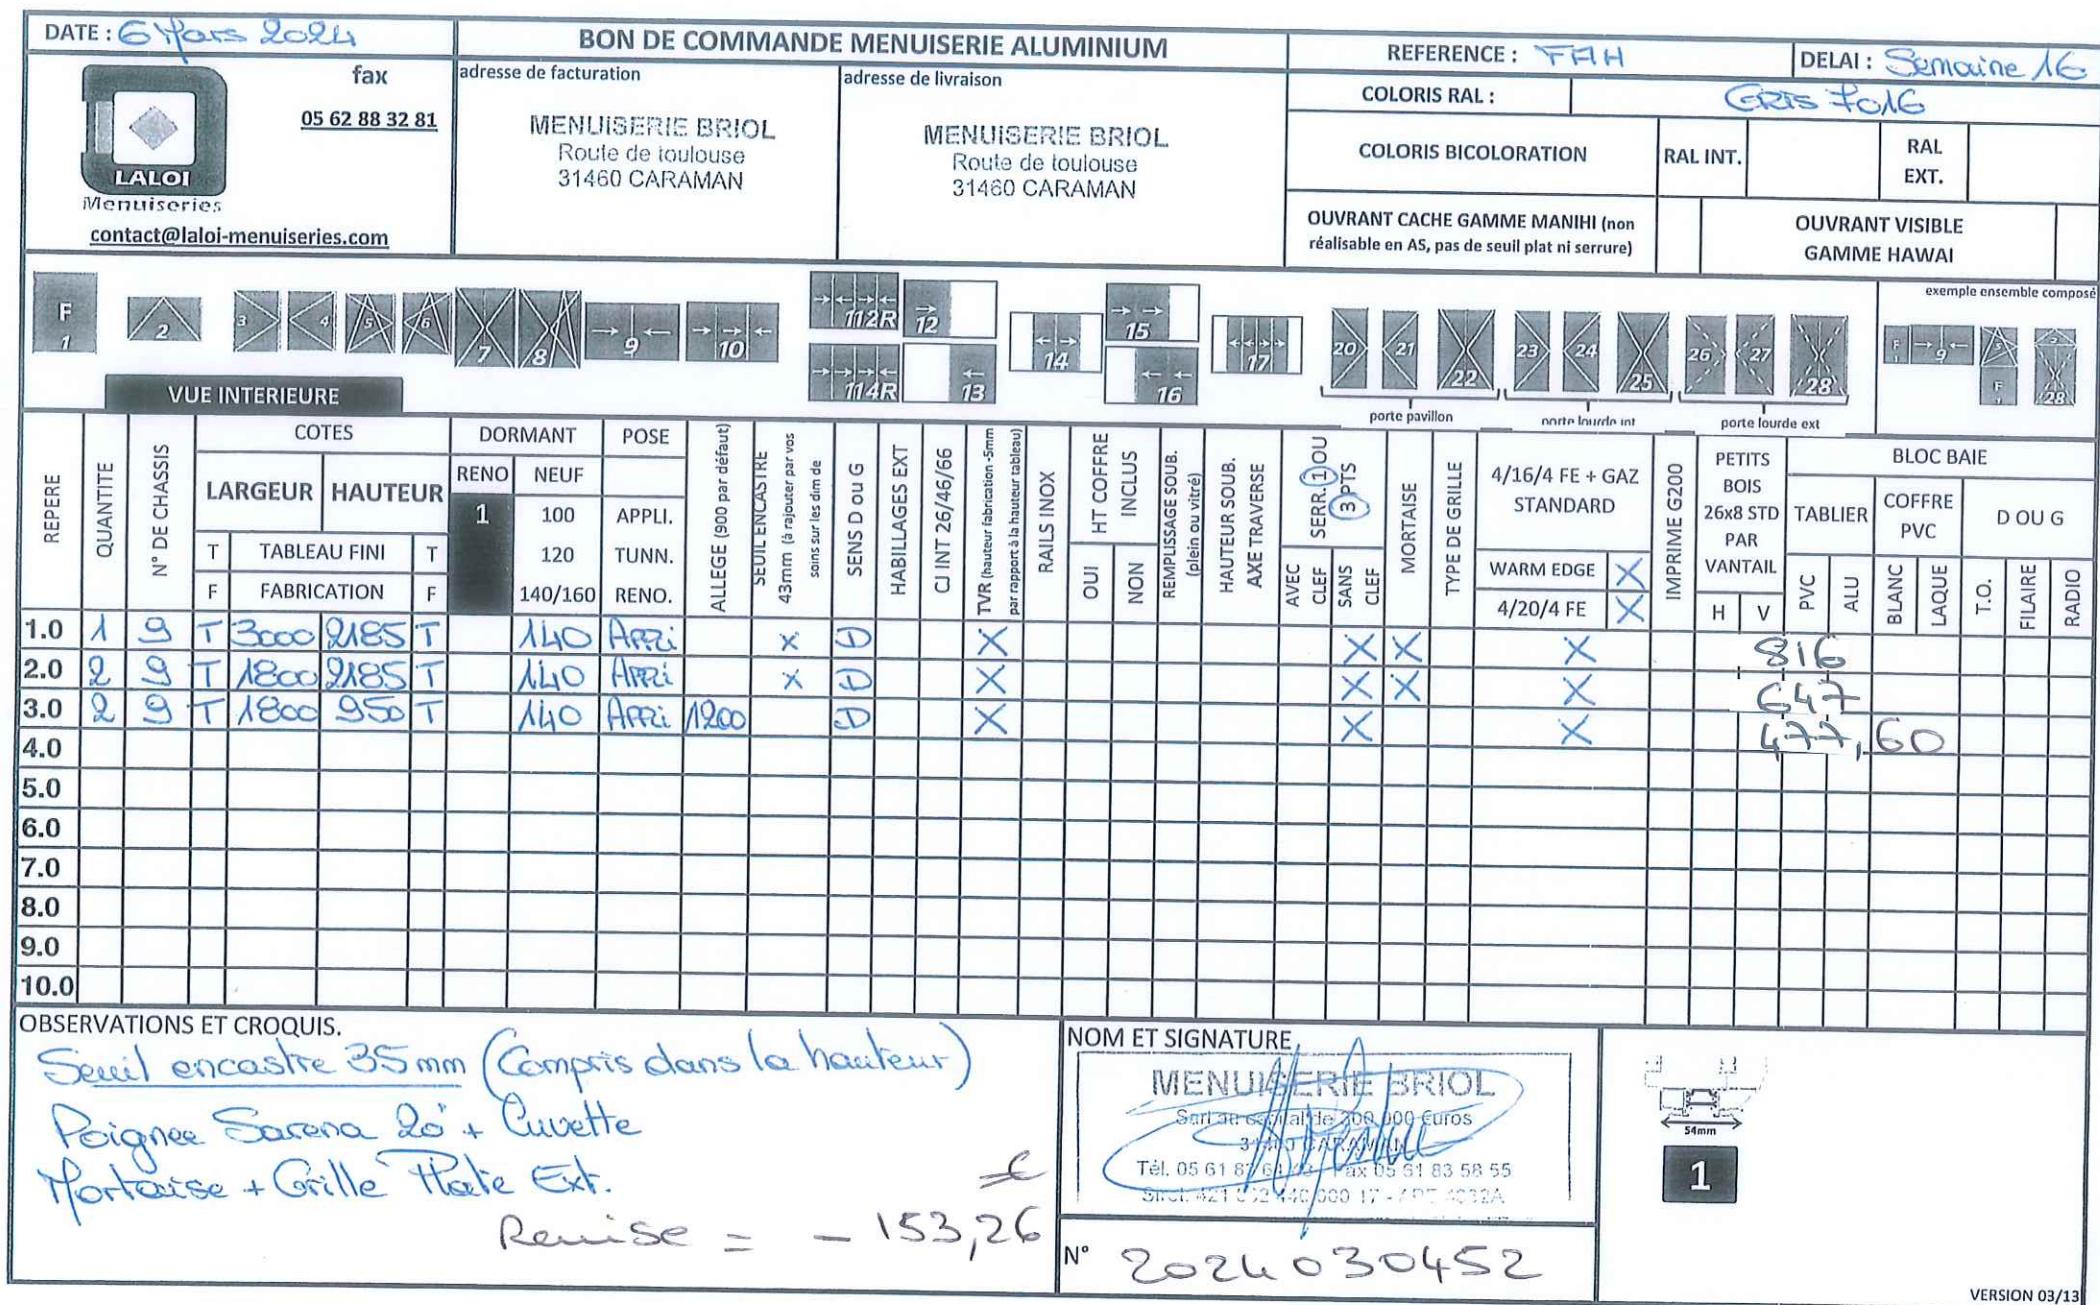 DATE : 6 Mars 2024
BON DE COMMANDE MENUISERIE ALUMINIUM
REFERENCE : FAH
DELAI : Semaine 16
LALOI
Menuiseries
fax
05 62 88 32 81
contact@laloi-menuiseries.com
adresse de facturation
MENUISERIE BRIOL
Route de toulouse
31460 CARAMAN
adresse de livraison
MENUISERIE BRIOL
Route de toulouse
31460 CARAMAN
COLORIS RAL : GRIS 7016
COLORIS BICOLORATION RAL INT. RAL EXT.
OUVRANT CACHE GAMME MANIHI (non
réalisable en AS, pas de seuil plat ni serrure)
OUVRANT VISIBLE
GAMME HAWAI
F 1 2 3 4 5 6 7 8 9 10 112R 114R 12 13 14 15 16 17 20 21 22 23 24 25 26 27 28
porte pavillon
porte lourde int
porte lourde ext
exemple ensemble composé
F 9 5 F 28
VUE INTERIEURE
REPERE
QUANTITE
N° DE CHASSIS
COTES
LARGEUR HAUTEUR
T TABLEAU FINI T
F FABRICATION F
DORMANT
RENO NEUF
1
100
120
140/160
POSE
APPLI.
TUNN.
RENO.
ALLEGE (900 par défaut)
SEUIL ENCASTRE
43mm (à rajouter par vos
soins sur les dim de
SENS D ou G
HABILLAGES EXT
CJ INT 26/46/66
TVR (hauteur fabrication -5mm
par rapport à la hauteur tableau)
RAILS INOX
HT COFFRE
INCLUS
OUI
NON
REMPLISSAGE SOUB.
(plein ou vitré)
HAUTEUR SOUB.
AXE TRAVERSE
SERR. 1 OU
3 PTS
AVEC
CLEF
SANS
CLEF
MORTAISE
TYPE DE GRILLE
4/16/4 FE + GAZ
STANDARD
WARM EDGE X
4/20/4 FE X
IMPRIME G200
PETITS
BOIS
26x8 STD
PAR
VANTAIL
H V
BLOC BAIE
TABLIER
PVC ALU
COFFRE
PVC
BLANC LAQUE
D OU G
T.O. FILAIRE RADIO
1.0 1 9 T 3000 2185 T 140 Appli X D X X X X 816
2.0 2 9 T 1800 2185 T 140 Appli X D X X X X 647
3.0 2 9 T 1800 950 T 140 Appli 1200 D X X X 477,60
4.0
5.0
6.0
7.0
8.0
9.0
10.0
OBSERVATIONS ET CROQUIS.
Seuil encastre 35mm (Compris dans la hauteur)
Poignee Sarena 20 + Cuvette
Mortaise + Grille Plate Ext.
€
Remise = - 153,26
NOM ET SIGNATURE
MENUISERIE BRIOL
Sarl au capital de 300 000 Euros
31460 CARAMAN
Tél. 05 61 Fax 05 61 83 58 55
N° 2024030452
54mm
1
VERSION 03/13